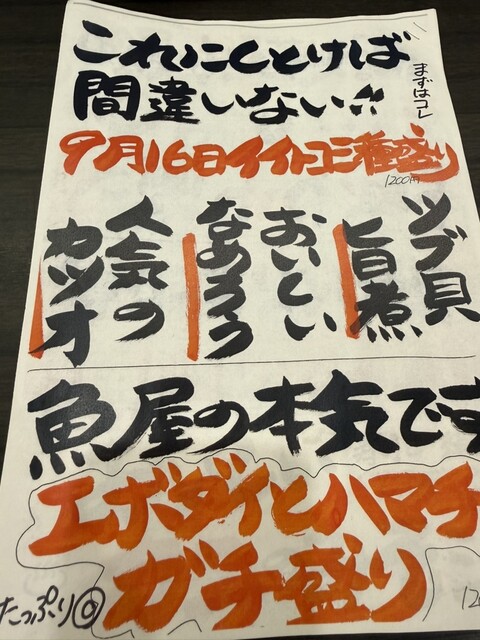 これにしとけば
間違いない!!
まずはコレ
9月16日イイトコ三種盛り
1200円
ツブ貝
旨煮
おいしい
なめろう
人気の
カツオ
魚屋の本気です
エボダイとハマチ
ガチ盛り
たっぷり◎